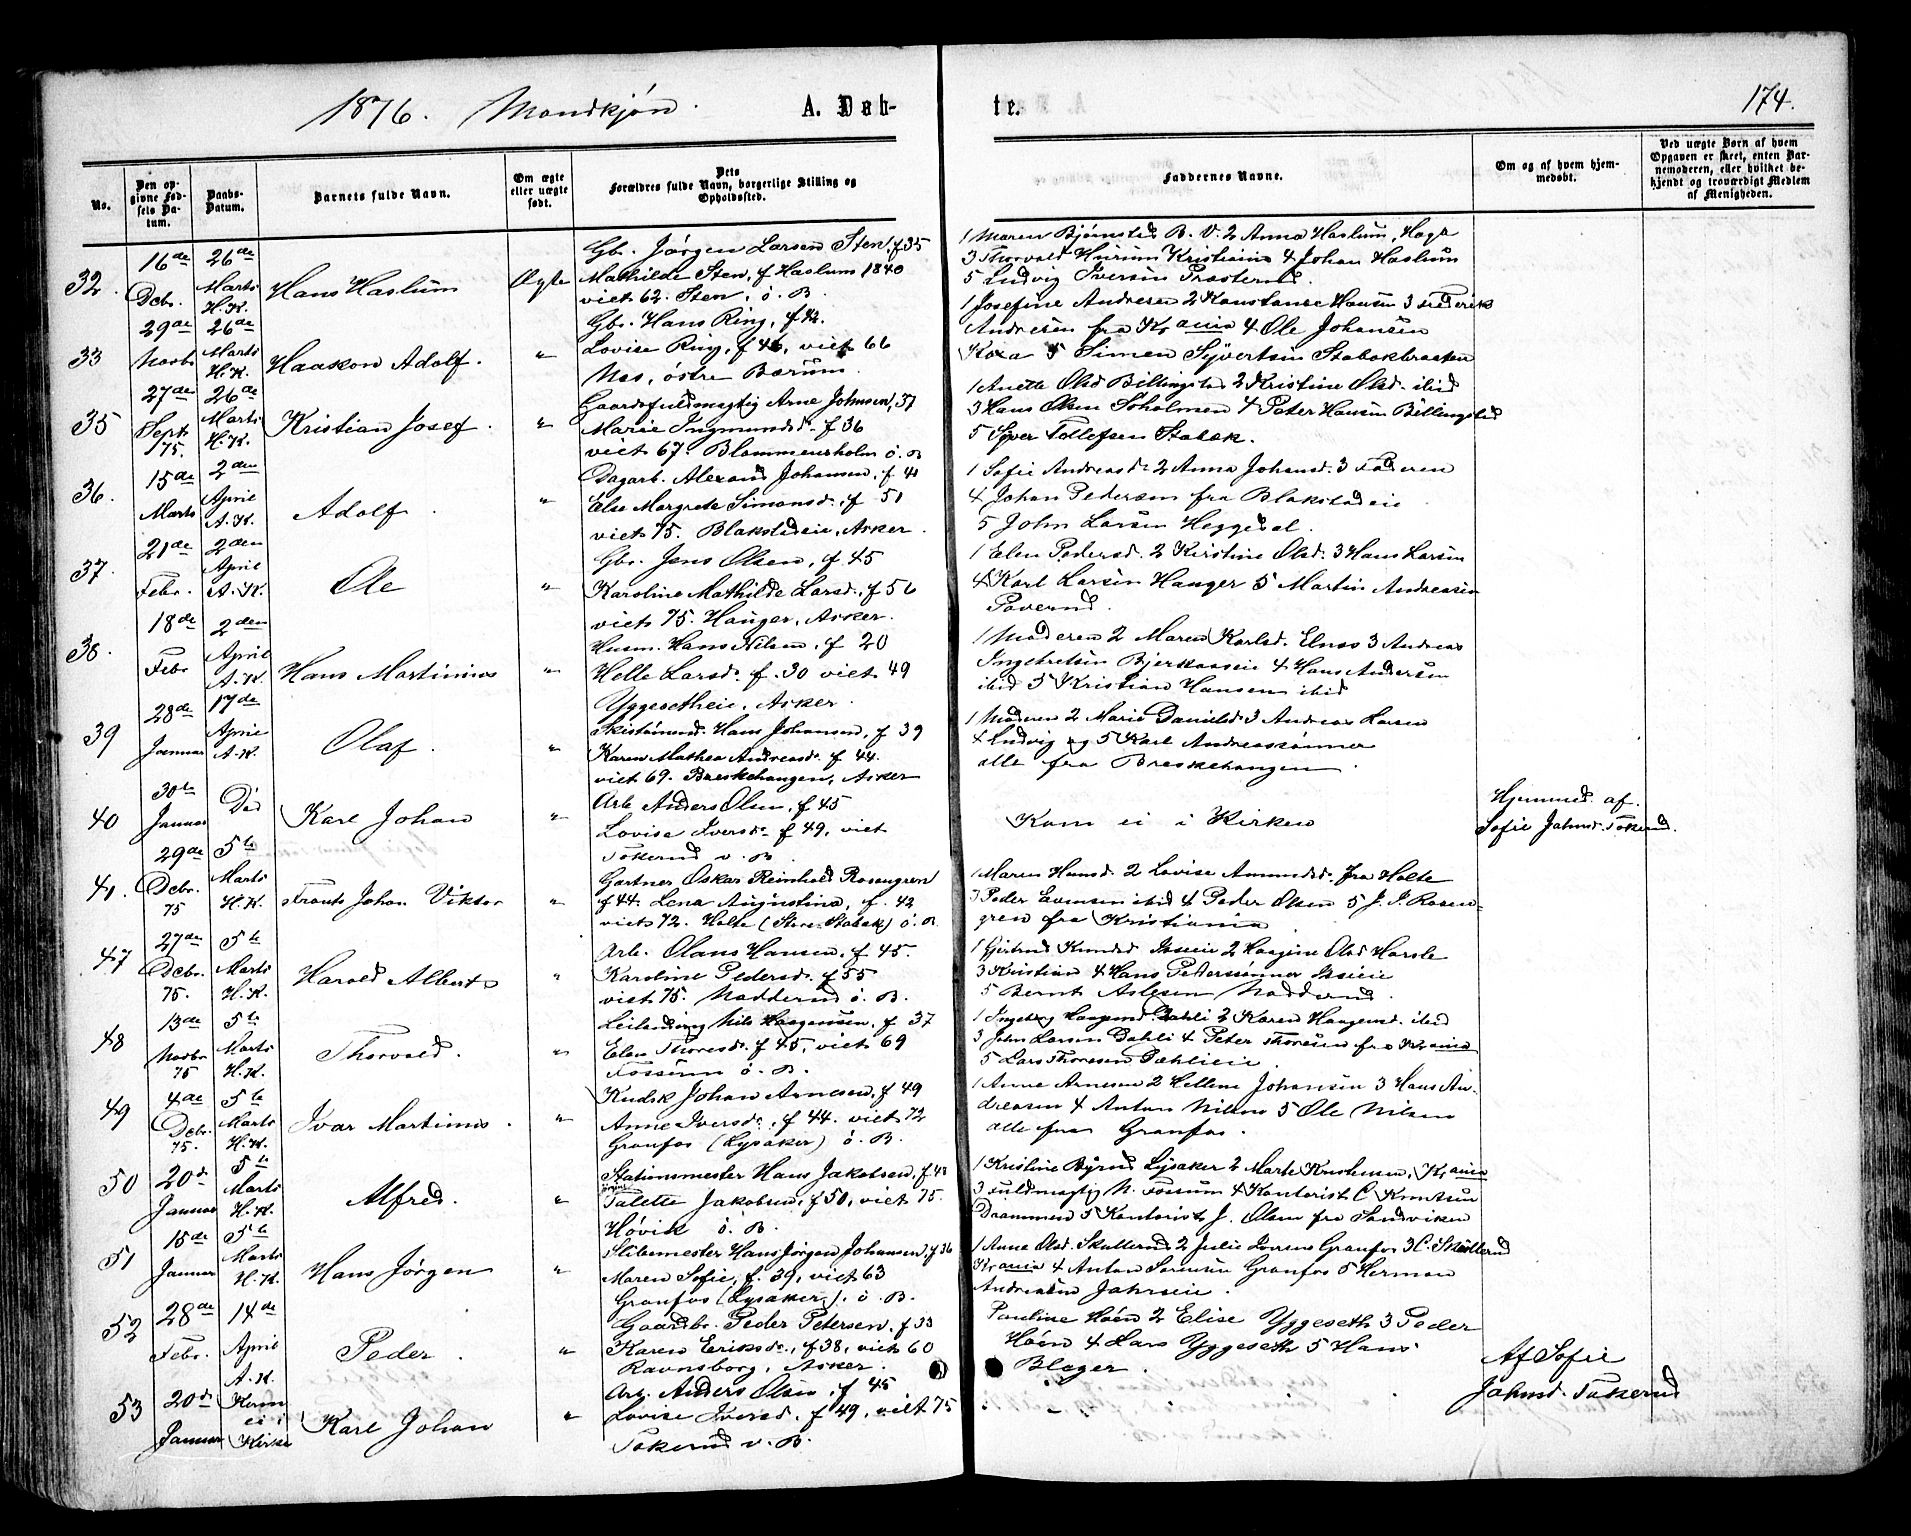 1876. Mandkjøn. A. Døb-
te. 174.
No.
Den opgivne Fødsels Datum.
Daabs-Datum.
Barnets fulde Navn.
Om ægte eller uægte født.
Dets Forældres fulde Navn, borgerlige Stilling og Opholdssted.
Faddernes Navne.
Om og af hvem hjemmedøbt.
Ved uægte Børn af hvem Opgaven er skeet, enten Barnemoderen, eller hvilket bekjendt og troværdigt Medlem af Menigheden.
32. 16de Debr. 26de Marts H.K. Hans Haslum Ægte
Gbr. Jørgen Larsen Sten, f 35
Mathilde Sten, f Haslum 1840
viet 62. Sten, ö. B.
1 Maren Bjørnstad B. V. 2 Anna Haslum, Haga
3 Thorvald Hurum Kristiania 4 Johan Haslum
5 Ludvig Iversen Præsterud
33 29de Novbr 26de Marts H.K. Haakon Adolf. "
Gbr. Hans Ring, f 42.
Lovise Ring, f 46, viet 66
Nes, östre Bærum.
1 Josefine Andresen 2 Konstanse Hansen 3 Frederik
Andresen fra Krania 4 Ole Johansen
Koxa 5 Simen Syvertsen Stabækbraaten
35 27de Septb 175. 26de Marts H.K. Kristian Josef. "
Gaardsfuldmægtig Arne Johnsen, 37
Marie Ingmundsd. f 36
viet 67. Blommensholm ö. B
1 Anette Olsd Billingstad 2 Kristine Olsd. ibid
3 Hans Olsen Soholmen 4 Peter Hansen Billingstad
5 Syver Tollefsen Stabæk.
36. 15de Marts 2den April A.K. Adolf. "
Dagarb. Alexand Johansen, f 41
Else Margrete Simonsd., f 51
viet 75. Blakstadeie, Asker.
1 Sofie Andreasd. 2 Anna Johansd. 3 Faderen
4 Johan Pedersen fra Blakstadeie
5 John Larsen Heggedal.
37. 21de Febr. 2den April A.K. Ole "
Gbr. Jens Olsen, f 45
Karoline Mathilde Larsd., f 56
viet 75. Hauger, Asker.
1 Elen Pedersd. 2 Kirstine Olsd. 3 Hans Larsen
4 Karl Larsen Hauger 5 Martin Andreasen
Poverud.
38. 18de Febr 2den April A.K. Hans Martinius "
Husm. Hans Nilsen, f 20
Helle Larsd. f. 30 viet 49
Yggesetheie, Asker.
1 Moderen 2 Maren Karlsd. Elnes 3 Andreas
Ingebretsen Bjerkaaseie 4 Hans Andersen
ibid 5 Kristian Hansen ibid
39 28de Januar 17de April A.K. Olaf. "
Hans Johansen, f 39
Karen Mathea Andreasd. f 44.
viet 69. Breskehaugen, Asker
1 Moderen 2 Marie Danielsd. 3 Andreas Larsen
4 Ludvig og 5 Karl Andreassønner
alle fra Breskehaugen.
40 30te Januar Död Karl Johan "
Arb. Anders Olsen, f 45
Lovise Iversd. f 49, viet
Tokerud v. B.
Kom ei i Kirken
Hjemmed. af.
Sofie Johnsd. Tokerud.
41. 29de Debr. 75 5te Marts H.K. Frants Johan Viktor "
Gartner Oskar Reinhold Rosengren
f 44. Lena Augustina, f. 42
viet 72. Holte (Store Stabæk) ö. B.
1 Maren Hansd. 2 Lovise Amundsd. fra Holte
3 Peder Evensen ibid 4 Peder Olsen 5 J. J. Rosen-
gren fra Kristiania
47 27de Debr. 75. 5te Marts H.K. Harald Alberts "
Arb. Olaus Hansen, f 45.
Karoline Pedersd. f 55
viet 75. Nadderud ö. B.
1 Gjertrud Knudsd 2 Haagine Olsd Harsle
3 Kristian 4 Hans Pederssønner
5 Bernt Aslesen Nadderud.
48 13de Novbr 75 5te Marts H.K. Thorvald. "
Leilending Nils Haagensen, f 37
Elen Thoresd. f 45, viet 69
Fossum ö. B.
1 Ingeborg Haagensd. Dahli 2 Karen Haagensd. ibid
3 John Larsen Dahli 4 Peter Thoresen fra Krania
5 Lars Thoresen Dæhlieie.
49 4de Debr. 75. 5te Marts H.K. Ivar Martinius. "
Kudsk Johan Arnesen, f 49
Anne Iversd., f 44. viet 72
Granfos (Lysaker) ö. B.
1 Anne Arnesen 2 Hellene Johansen 3 Hans An-
dreasen 4 Anton Nilsen 5 Ole Nilsen
alle fra Granfos.
50 20d Januar 5te Marts H.K. Alfred. "
Stationsmester Hans Jakobsen, f 48
Talette Jakobsen, f 50, viet 75.
Høvik ö. B.
1 Kristine Lysaker 2 Marte, Krania
3 Fuldmægtig N. Fossum 4 Kontorist C. Knutsen
Drammen 5 Kontorist J. Olsen fra Sandviken
51 15de Januar 5te Marts H.K. Hans Jørgen "
Slibemester Hans Jørgen Johansen, f 36
Maren Sofie, f. 39, viet 63
Granfos (Lysaker). ö. B.
1 Anne Olsd. Skullerud 2 Julie Granfos 3 C. Skullerud
Krania 4 Anton Sørensen Granfos 5 Herman
Andreasen Jahrseie.
52 28de Febr. 14de April A.K. Peder. "
Gaardbr. Peder Petersen, f 33
Karen Eriksd., f 38, viet 60
Ravnsborg, Asker.
Pauline Høen 2 Elise Yggeseth 3 Peder
Høen 4 Lars Yggeseth 5 Hans
Blager.
53 20d. Januar Kom ei i Kirke Karl Johan "
Arb. Anders Olsen, f 45
Lovise Iversd. f 49, viet 75
Tokerud v. B.
Af Sofie
Johnsd. Tokerud